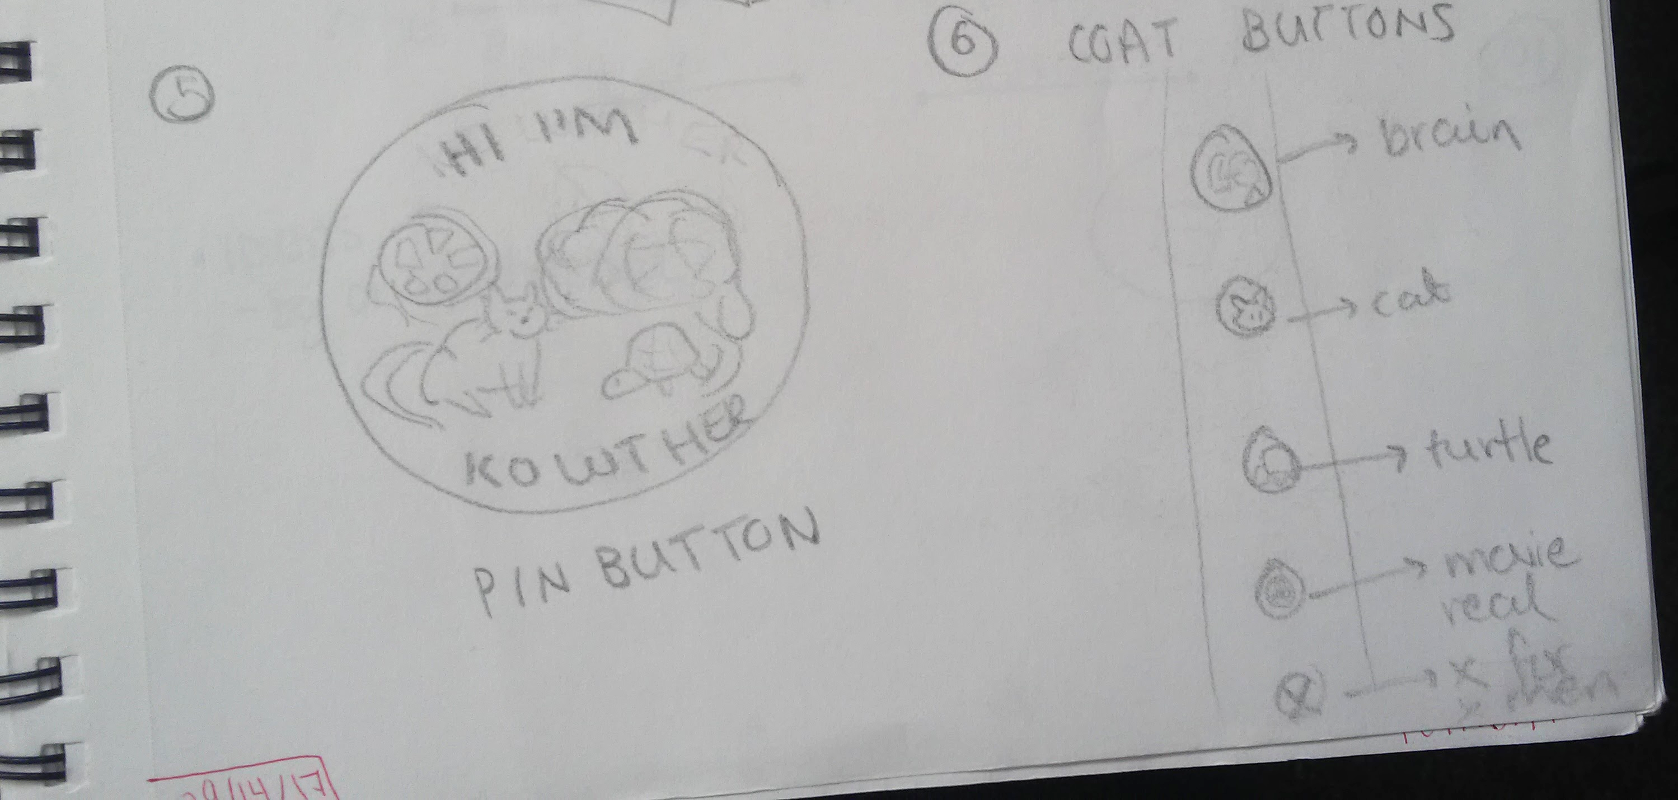 5
HI I'M
KOWTHER
PIN BUTTON
6 COAT BUTTONS
brain
cat
turtle
movie
real
x for
x men
09/14/17